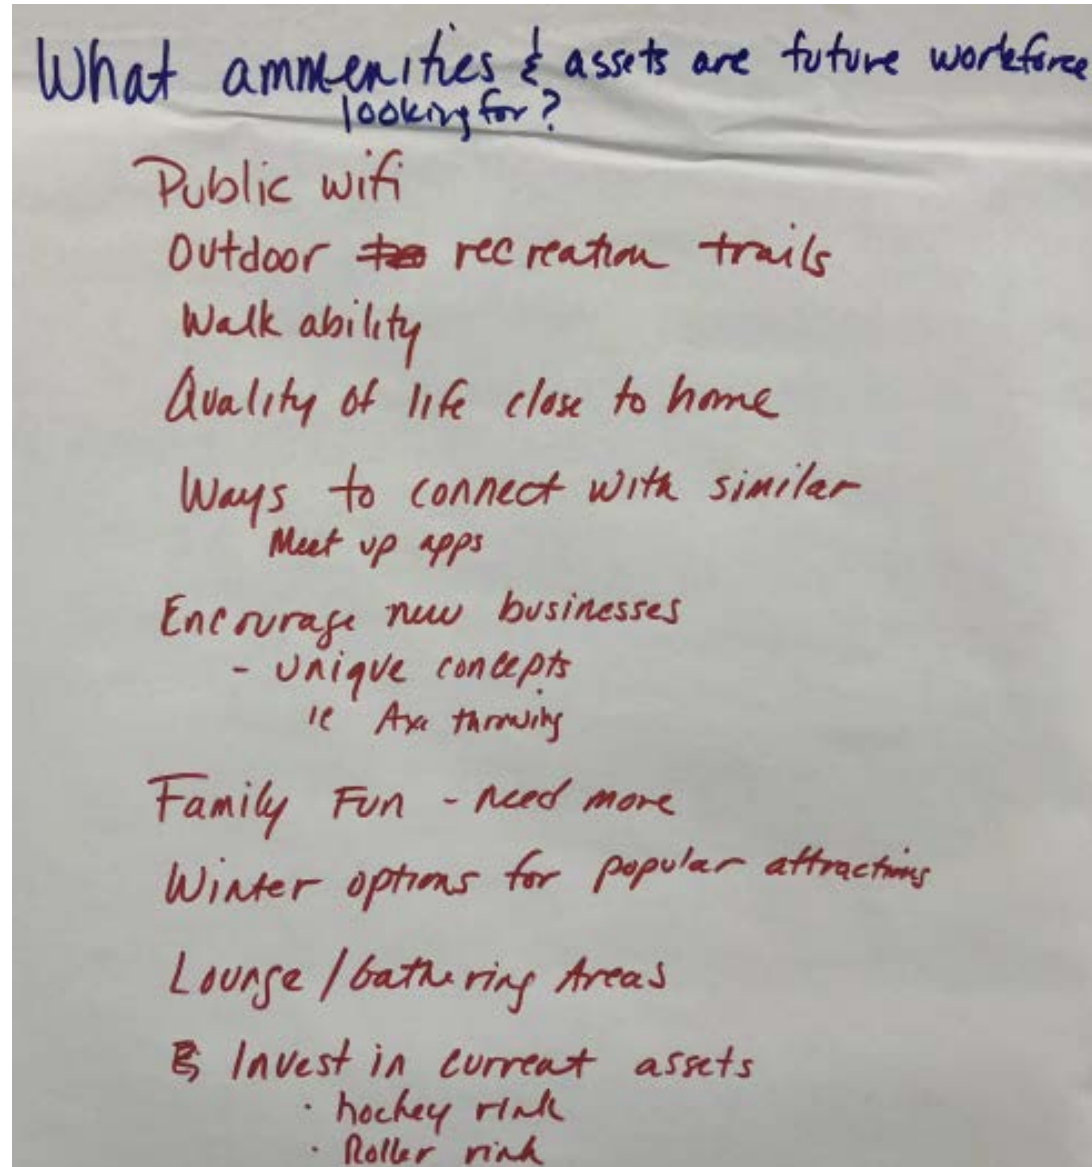 What ammenities & assets are future workforce
looking for?
Public wifi
Outdoor recreation trails
Walk ability
Quality of life close to home
Ways to connect with similar
Meet up apps
Encourage new businesses
- Unique concepts
ie Axe throwing
Family Fun - need more
Winter options for popular attractions
Lounge / Gathering Areas
Invest in current assets
· hockey rink
· Roller rink